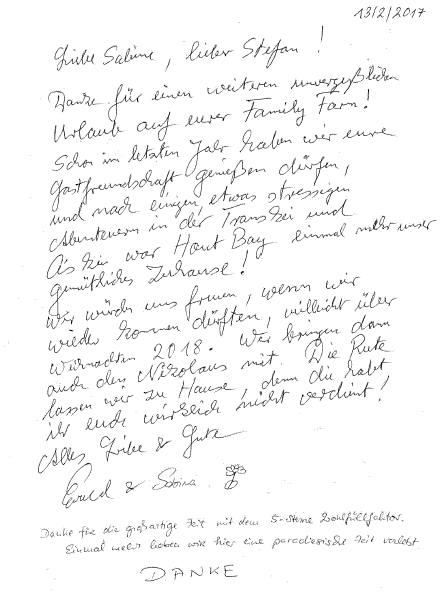 13/2/2017
Liebe Sabine, lieber Stefan!
Danke für einen weiteren unvergeßlichen
Urlaub auf eurer Family Farm!
Schon im letzten Jahr haben wir eure
Gastfreundschaft genießen dürfen,
und nach einigen, etwas stressigen
Abenteuern in der Transkei und
Ciskei war Hout Bay einmal mehr unser
gemütliches Zuhause!
Wir würden uns freuen, wenn wir
wieder kommen dürften, vielleicht über
Weihnachten 2018. Wir bringen dann
auch den Nikolaus mit. Die Rute
lassen wir zu Hause, denn die habt
ihr euch wirklich nicht verdient!
Alles Liebe & Gute
& Sabina
Danke für die großartige Zeit mit dem 5-Sterne Wohlfühlfaktor.
Einmal mehr haben wir hier eine paradiesische Zeit verlebt
DANKE